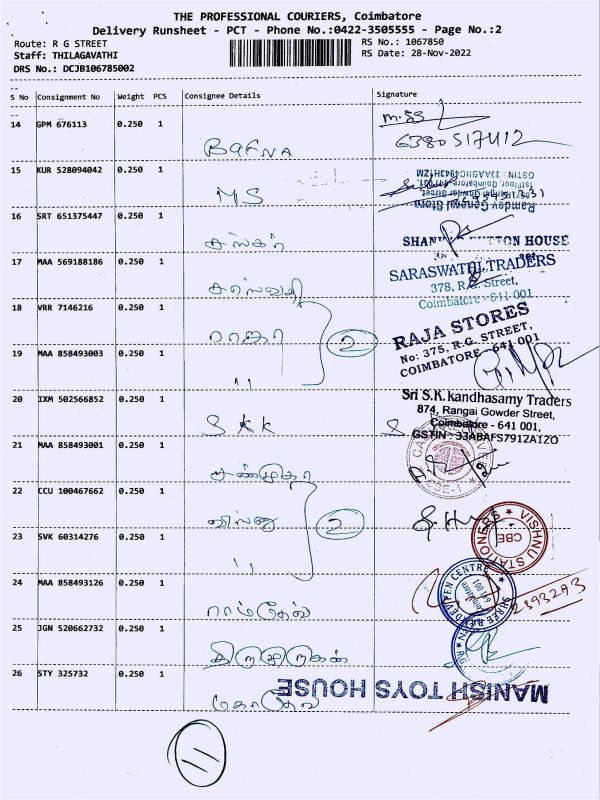 THE PROFESSIONAL COURIERS, Coimbatore
Delivery Runsheet - PCT - Phone No.:0422-3505555 - Page No.:2
Route: R G STREET
Staff: THILAGAVATHI
DRS No.: DCJB106785002
RS No.: 1067850
RS Date: 28-Nov-2022
S No Consignment No Weight PCS Consignee Details Signature
14 GPM 676113 0.250 1
BAFNA
6380517412
15 KUR 528094042 0.250 1
MS
GSTIN : 33AABHC4943H1ZM
Ramdev General Store
16 SRT 651375447 0.250 1
BUTTON HOUSE
17 MAA 569188186 0.250 1
சரஸ்வதி
SARASWATHI TRADERS
378, R.G. Street,
Coimbatore - 641 001
18 VRR 7146216 0.250 1
ராஜா
2
RAJA STORES
No: 375, R.G. STREET,
COIMBATORE - 641 001
19 MAA 858493003 0.250 1
,,
20 IXM 502566852 0.250 1
SKK
Sri S.K.kandhasamy Traders
874, Rangai Gowder Street,
Coimbatore - 641 001,
GSTIN : 33ABAFS7912A1ZO
21 MAA 858493001 0.250 1
CBE-1
22 CCU 100467662 0.250 1
2
VISHNU STATIONERS
CBE
23 SVK 60314276 0.250 1
,,
24 MAA 858493126 0.250 1
ராம்தேவ்
SHREE RAMDEV PEN CENTRE
Coimbatore
641 001
25 JGN 520662732 0.250 1
திருமுருகன்
26 STY 325732 0.250 1
MANISH TOYS HOUSE
11